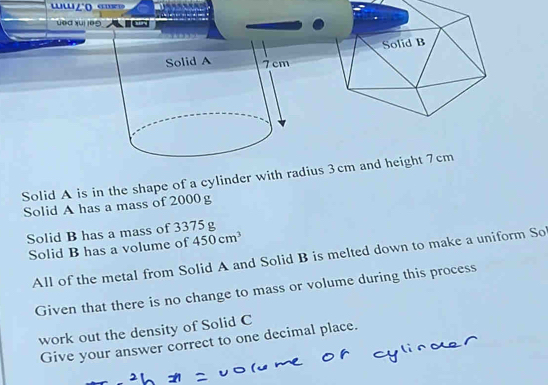 0.7mm
Gel ink pen
Solid A
7 cm
Solid B
Solid A is in the shape of a cylinder with radius 3 cm and height 7 cm
Solid A has a mass of 2000 g
Solid B has a mass of 3375 g
Solid B has a volume of 450 cm³
All of the metal from Solid A and Solid B is melted down to make a uniform
Given that there is no change to mass or volume during this process
work out the density of Solid C
Give your answer correct to one decimal place.
²h = volume of cylinder